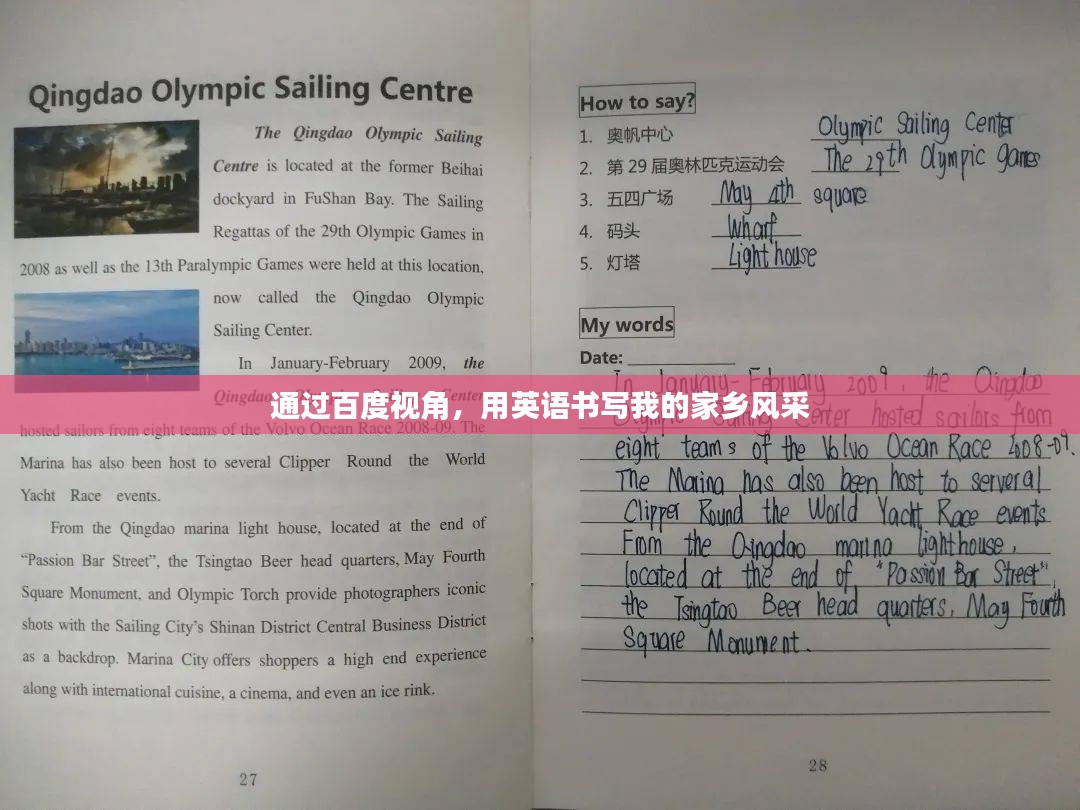 Qingdao Olympic Sailing Centre
The Qingdao Olympic Sailing
Centre is located at the former Beihai
dockyard in FuShan Bay. The Sailing
Regattas of the 29th Olympic Games in
2008 as well as the 13th Paralympic Games were held at this location,
now called the Qingdao Olympic
Sailing Center.
In January-February 2009, the
Qingdao Center
hosted sailors from eight teams of the Volvo Ocean Race 2008-09. The
Marina has also been host to several Clipper Round the World
Yacht Race events.
From the Qingdao marina light house, located at the end of
“Passion Bar Street”, the Tsingtao Beer head quarters, May Fourth
Square Monument, and Olympic Torch provide photographers iconic
shots with the Sailing City’s Shinan District Central Business District
as a backdrop. Marina City offers shoppers a high end experience
along with international cuisine, a cinema, and even an ice rink.
27
How to say?
1. 奥帆中心 Olympic Sailing Center
2. 第 29 届奥林匹克运动会 The 29th Olympic games
3. 五四广场 May 4th square
4. 码头 Wharf
5. 灯塔 Light house
My words
Date:
In January-February 2009, the Qingdao
Olympic Center hosted sailors from
eight teams of the Volvo Ocean Race 2008-09.
The Marina has also been host to serveral
Clipper Round the World Yacht Race events
From the Qingdao marina lighthouse,
located at the end of "Passion Bar Street",
the Tsingtao Beer head quarters, May Fourth
Square Monument.
28
通过百度视角，用英语书写我的家乡风采